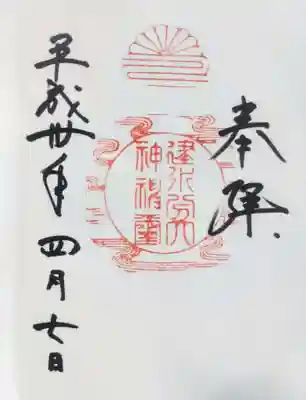 奉拝
建水分
神社璽
平成卅年四月七日